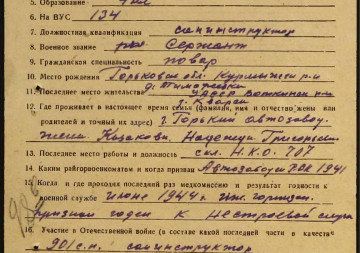 5. Образование 4 кл
6. На ВУС 134
7. Должностная квалификация санинструктор
8. Военное звание Сержант
9. Гражданская специальность повар
10. Место рождения Горьковск. обл.
11. Последнее место жительства
12. Где проживает в настоящее время семья (фамилия, имя и отчество жены или
родителей и точный их адрес) г. Горький автозавод
жена Казакова Надежда
13. Последнее место работы и должность скл. Н.К.О. 707
14. Каким райгорвоенкоматом и когда призван Автозаводск РВК 1941
15. Когда и где проходил последний раз медкомиссию и результат годности к
военной службе июне 1944 г.
признан годен к нестроевой службе
16. Участие в Отечественной войне (в составе какой последней части и в качестве
901 с.п. санинструктор